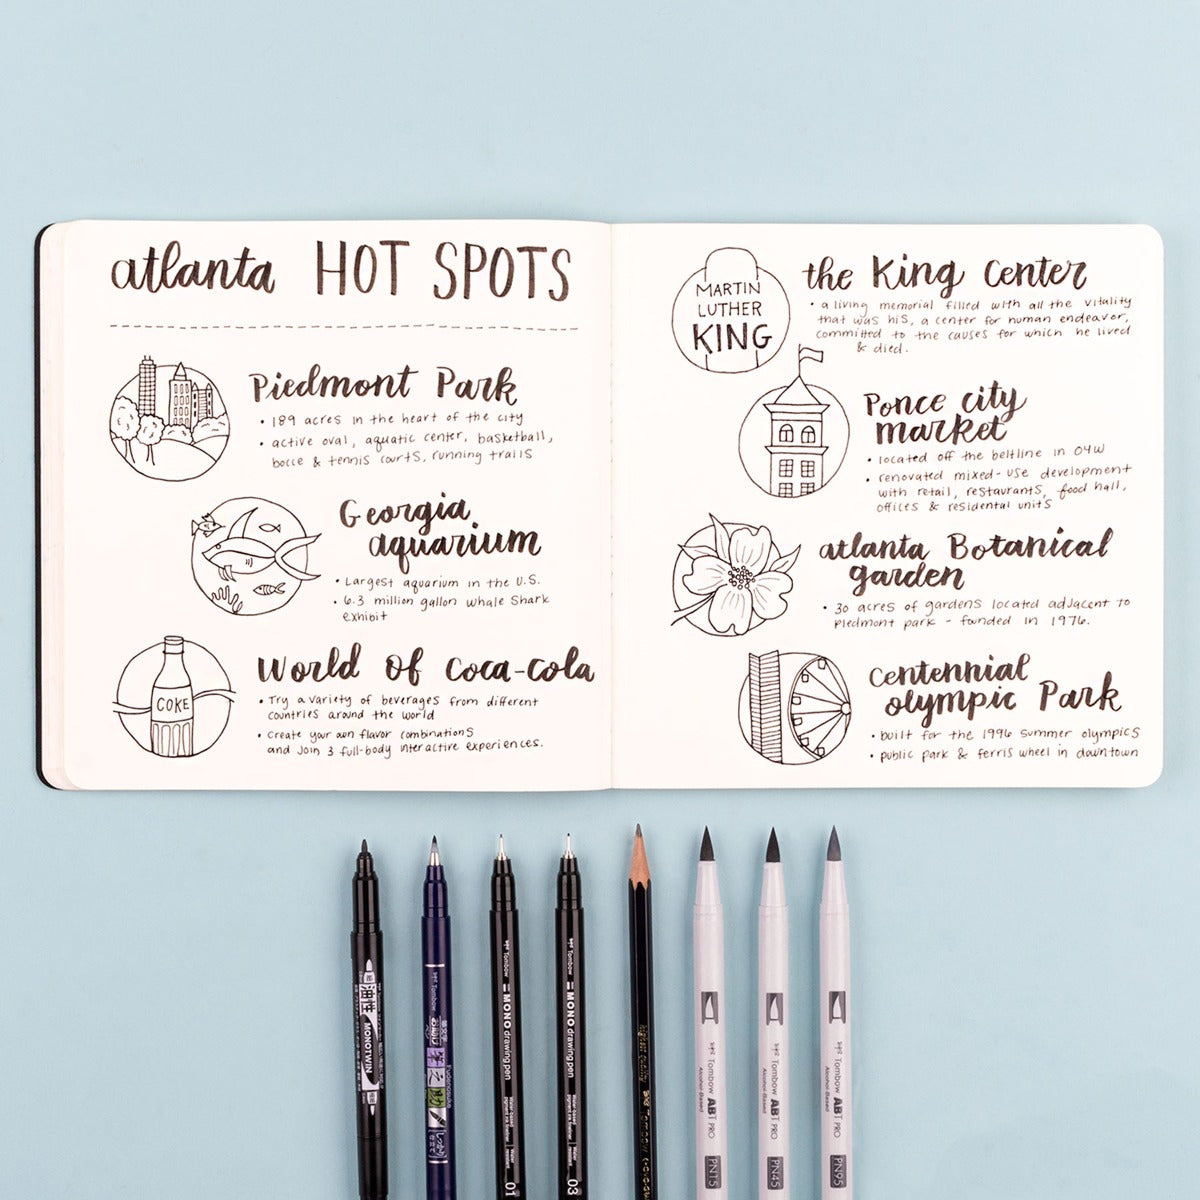 atlanta HOT SPOTS
Piedmont Park
• 189 acres in the heart of the city
• active oval, aquatic center, basketball,
bocce & tennis courts, running trails
Georgia
aquarium
• Largest aquarium in the U.S.
• 6.3 million gallon whale shark
exhibit
World of Coca-Cola
COKE
• Try a variety of beverages from different
countries around the world
• Create your own flavor combinations
and join 3 full-body interactive experiences.
MARTIN
LUTHER
KING
the King Center
• a living memorial filled with all the vitality
that was his, a center for human endeavor,
committed to the causes for which he lived
& died.
Ponce city
market
• located off the beltline in O4W
• renovated mixed-use development
with retail, restaurants, food hall,
offices & residental units
atlanta Botanical
garden
• 30 acres of gardens located adjacent to
piedmont park - founded in 1976.
Centennial
olympic Park
• built for the 1996 summer olympics
• public park & ferris wheel in downtown
油性 MONOTWIN
Tombow
筆之助
Fudenosuke
Tombow MONO drawing pen
Water-based
pigment ink
01
Tombow MONO drawing pen
Water-based
pigment ink
03
Tombow
Tombow ABT PRO
Alcohol-Based
PN15
Tombow ABT PRO
Alcohol-Based
PN45
Tombow ABT PRO
Alcohol-Based
PN95